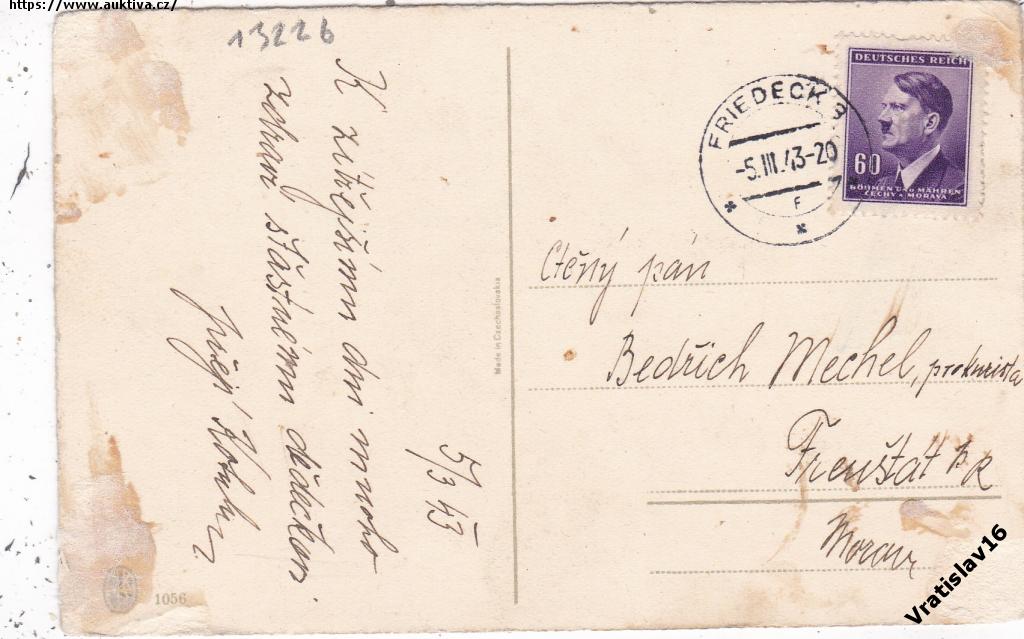 https://www.auktiva.cz/
13226
K zítřejšímu dni mnoho
zdraví šťastnému dědečkovi
přejí
5/3 43
Made in Czechoslovakia
1056
FRIEDECK 3
-5.III.43-20
F
DEUTSCHES REICH
60
BÖHMEN UND MÄHREN
ČECHY A MORAVA
Ctěný pán
Bedřich Mechel, prokurista
Frenštát p. R
Morava
Vratislav16